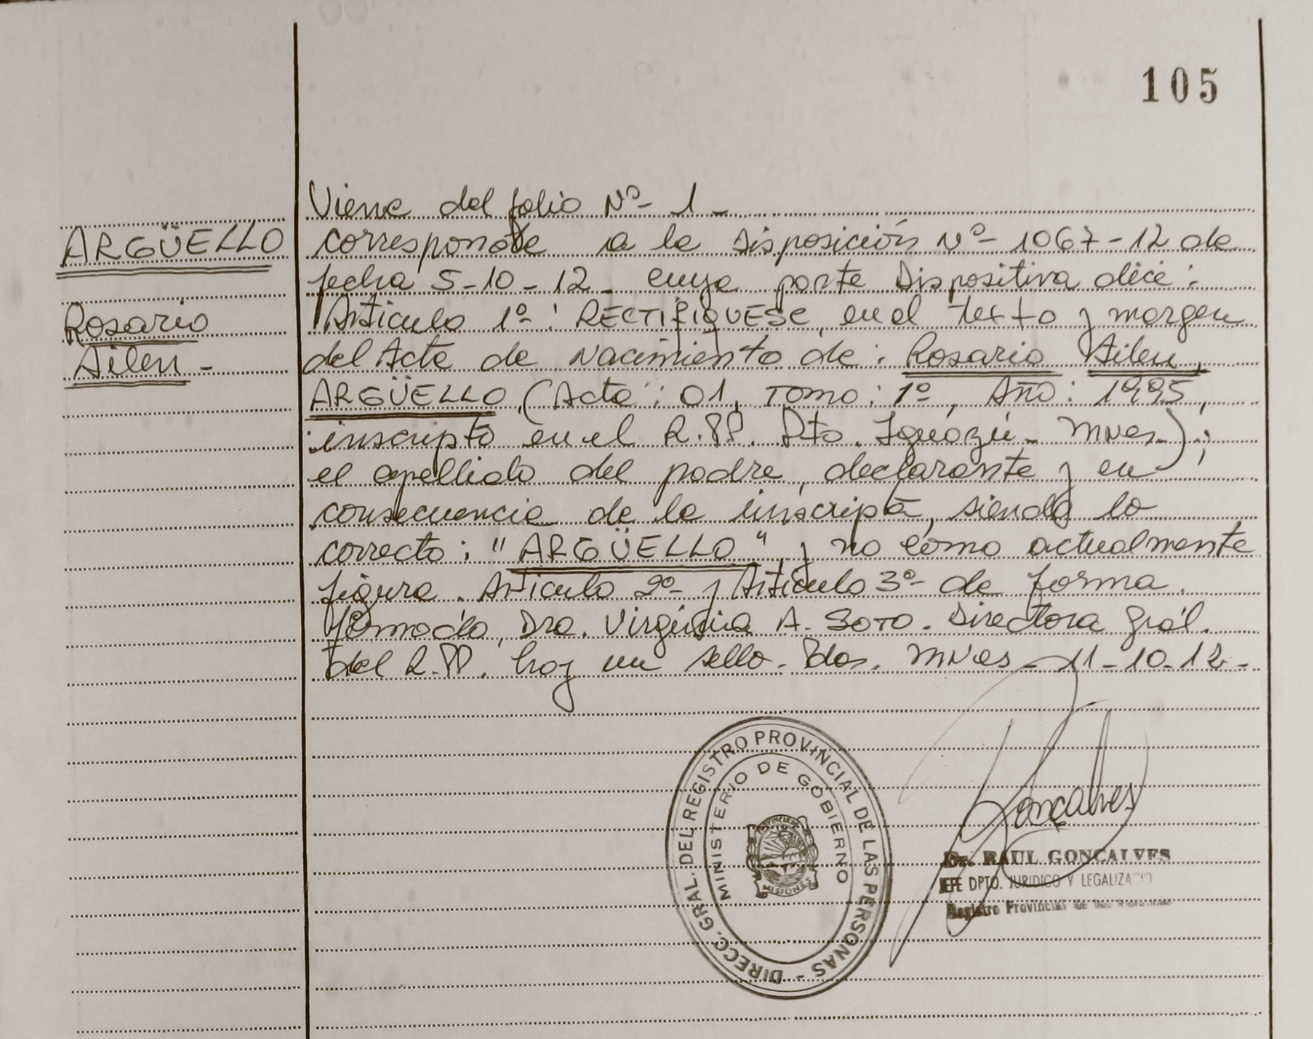 105
ARGÜELLO
Rosario
Ailen -
Viene del folio Nº- 1 -
corresponde a la Disposición Nº- 1067-12 de
fecha 5-10-12 cuya parte Dispositiva dice:
Artículo 1º: RECTIFIQUESE, en el texto y margen
del Acta de Nacimiento de: Rosario Ailen
ARGÜELLO (Acta: 01, Tomo: 1º, Año: 1995,
inscripto en el R.PP. Dto. Iguazú - Mnes.);
el apellido del padre, declarante y en
consecuencia de la inscripta, siendo lo
correcto: "ARGÜELLO", y no como actualmente
figura. Artículo 2º y Artículo 3º- de forma.
Firmado, Dra. Virginia A. Soto. Directora Gral.
del R.PP. hay un sello. Pdas. Mnes - 11-10-12 -
DIRECC. GRAL. DEL REGISTRO PROVINCIAL DE LAS PERSONAS -
MINISTERIO DE GOBIERNO
MISIONES
Gonçalves
Dr. RAUL GONCALVES
JEFE DPTO. JURIDICO Y LEGALIZACIO
Registro Provincial de las